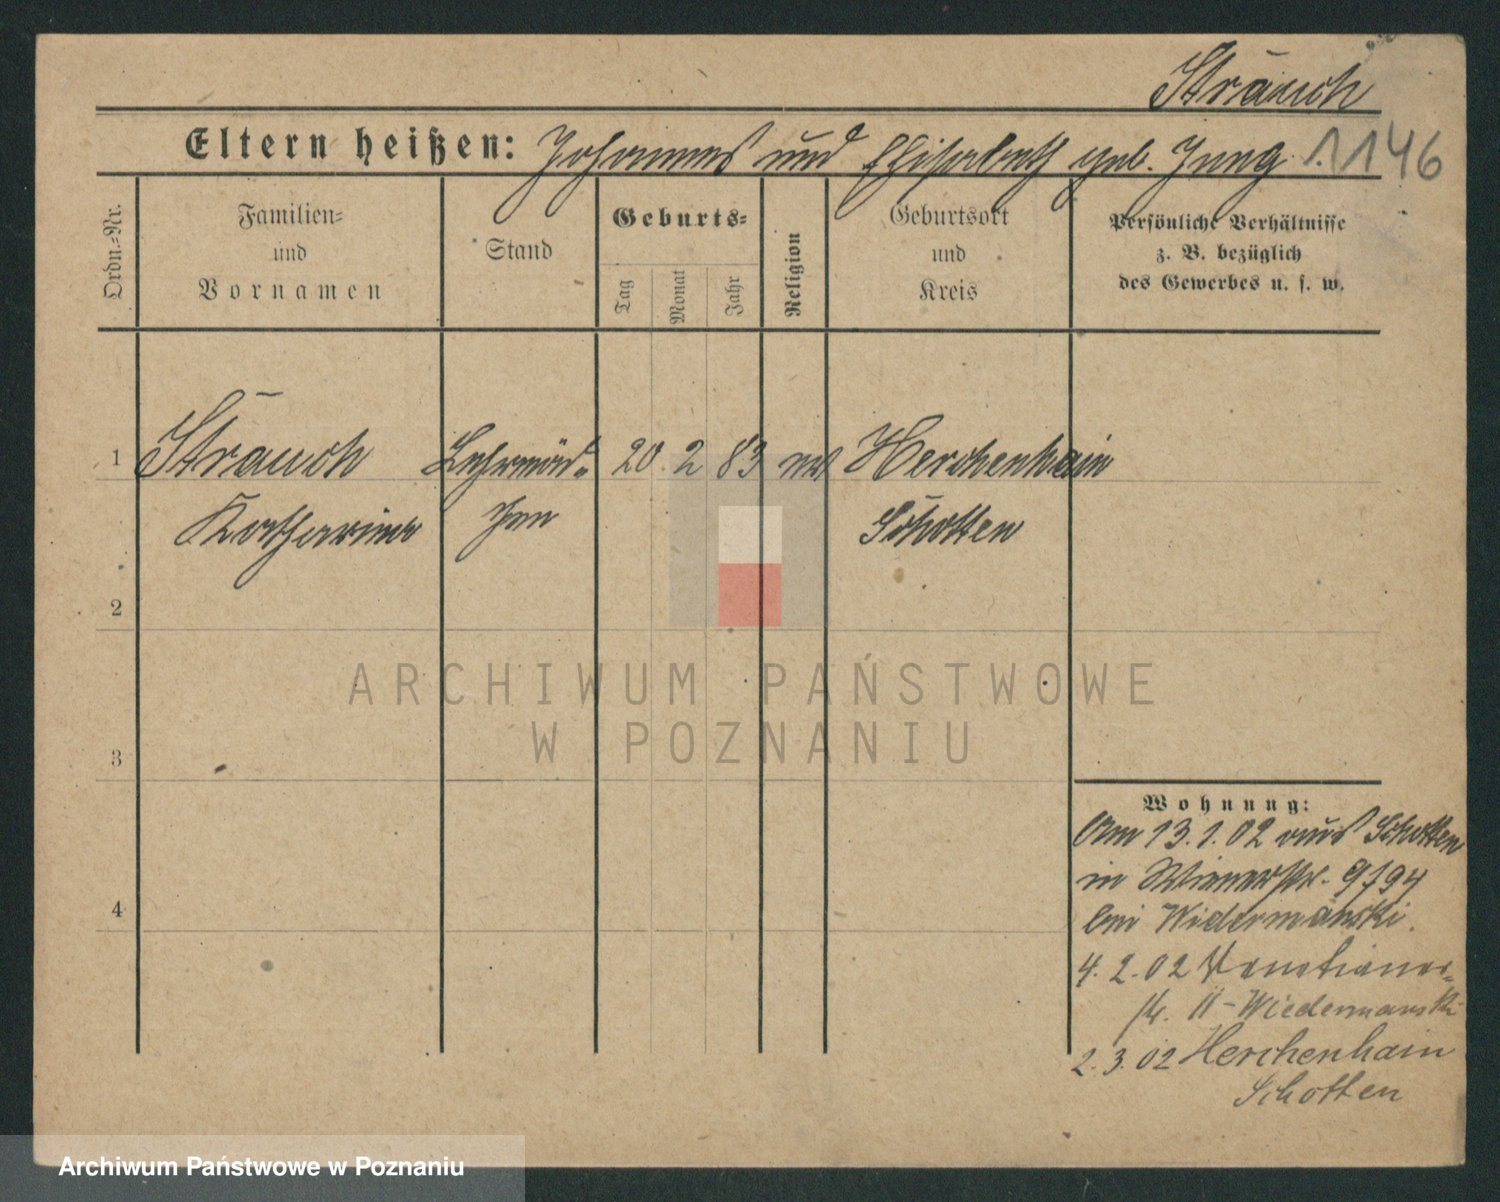 Strauch
Eltern heißen: Johannes und Elisabeth geb. Jung 1146
Ordn.-Nr.
Familien-
und
Vornamen
Stand
Geburts-
Tag
Monat
Jahr
Religion
Geburtsort
und
Kreis
Persönliche Verhältnisse
z. B. bezüglich
des Gewerbes u. s. w.
1 Strauch Lehrmäd- 20 2 83 ev Herchenhain
Katharina chen Schotten
2
3
4
Wohnung:
Am 13.1.02 aus Schotten
in Wienerstr. 9/94
bei Widermanski.
4.2.02 Venetianer-
str. 11 - Wiedermanski
2.3.02 Herchenhain
Schotten
ARCHIWUM PAŃSTWOWE
W POZNANIU
Archiwum Państwowe w Poznaniu